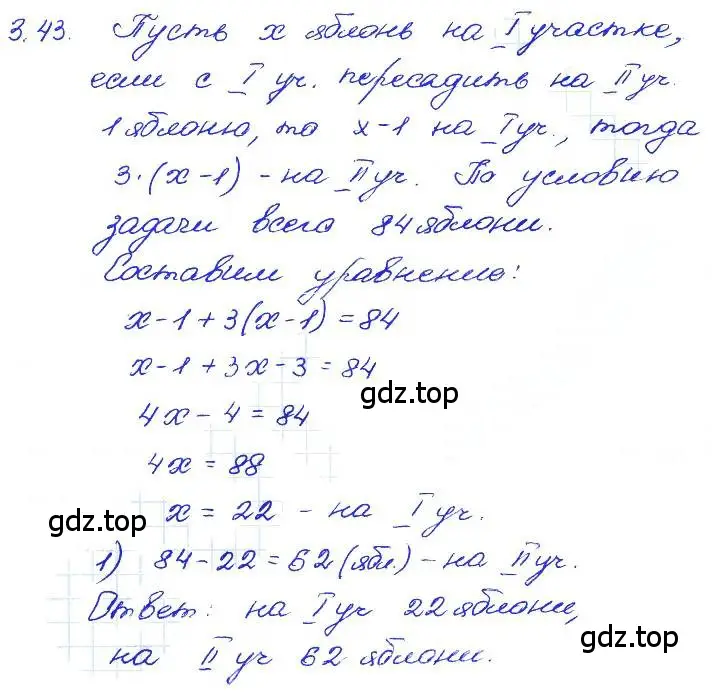 3.43. Пусть x яблонь на I участке,
если с I уч. пересадить на II уч.
1 яблоню, то x-1 на I уч., тогда
3·(x-1) - на II уч. По условию
задачи всего 84 яблони.
Составим уравнение:
x-1+3(x-1)=84
x-1+3x-3=84
4x-4=84
gdz.top
4x=88
x=22 - на I уч.
gdz.top
1) 84-22=62(ябл.)-на II уч.
Ответ: на I уч 22 яблони,
на II уч 62 яблони.
gdz.top